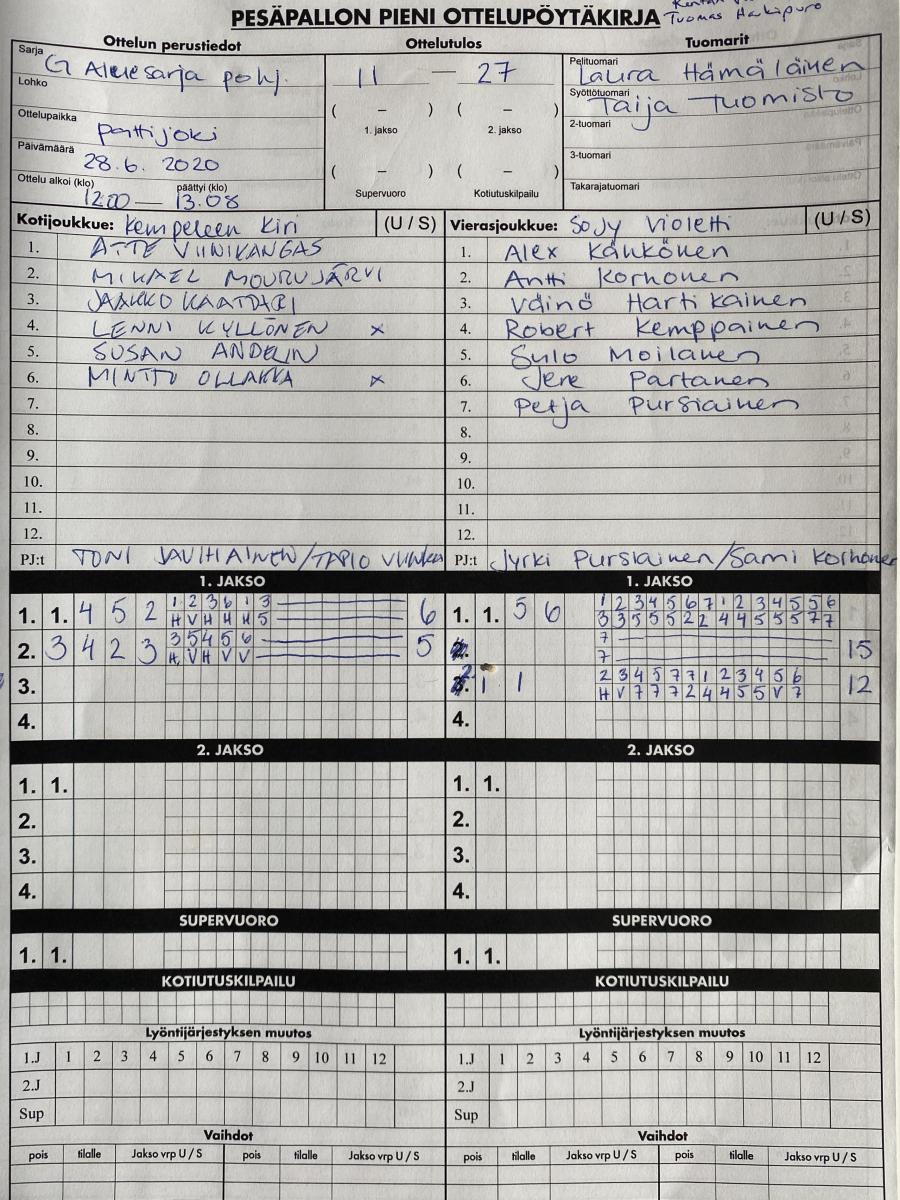 PESÄPALLON PIENI OTTELUPÖYTÄKIRJA
Tuomas
Ottelun perustiedot
Ottelutulos
Tuomarit
Sarja
G Aluesarja pohj.
11 — 27
Pelituomari
Laura Hämäläinen
Lohko
Syöttötuomari
Taija Tuomisto
Ottelupaikka
Pattijoki
( – ) ( – )
1. jakso 2. jakso
2-tuomari
Päivämäärä
28.6. 2020
3-tuomari
Ottelu alkoi (klo) päättyi (klo)
12:00 — 13.08
( – ) ( – )
Supervuoro Kotiutuskilpailu
Takarajatuomari
Kotijoukkue: Kempeleen Kiri (U / S)
1. ATTE VIINIKANGAS
2. MIKAEL MOURUJÄRVI
3. JAAKKO
4. LENNI KYLLÖNEN x
5. SUSAN ANDELIN
6. MINTTU OLLAKKA x
7.
8.
9.
10.
11.
12.
PJ:t TONI /TAPIO
Vierasjoukkue: SoJy Violetti (U / S)
1. Alex Känkönen
2. Antti Korhonen
3. Väinö Hartikainen
4. Robert Kemppainen
5. Sulo Moilanen
6. Jere Partanen
7. Petja Pursiainen
8.
9.
10.
11.
12.
PJ:t Jyrki Pursiainen/Sami Korhonen
1. JAKSO
1. 1. 4 5 2 1 2 3 6 1 3 6
H V H H H 5
2. 3 4 2 3 3 5 4 5 6 5
H V H V V
3.
4.
1. JAKSO
1. 1. 5 6 1 2 3 4 5 6 7 1 2 3 4 5 5 6
3 3 5 5 5 2 2 4 4 5 5 5 7 7
7 15
7
2. 1 1 2 3 4 5 7 7 1 2 3 4 5 6 12
H V 7 7 7 2 4 4 5 5 V 7
4.
2. JAKSO
1. 1.
2.
3.
4.
2. JAKSO
1. 1.
2.
3.
4.
SUPERVUORO
1. 1.
SUPERVUORO
1. 1.
KOTIUTUSKILPAILU
KOTIUTUSKILPAILU
Lyöntijärjestyksen muutos
1.J 1 2 3 4 5 6 7 8 9 10 11 12
2.J
Sup
Lyöntijärjestyksen muutos
1.J 1 2 3 4 5 6 7 8 9 10 11 12
2.J
Sup
Vaihdot
pois tilalle Jakso vrp U / S pois tilalle Jakso vrp U / S
Vaihdot
pois tilalle Jakso vrp U / S pois tilalle Jakso vrp U / S